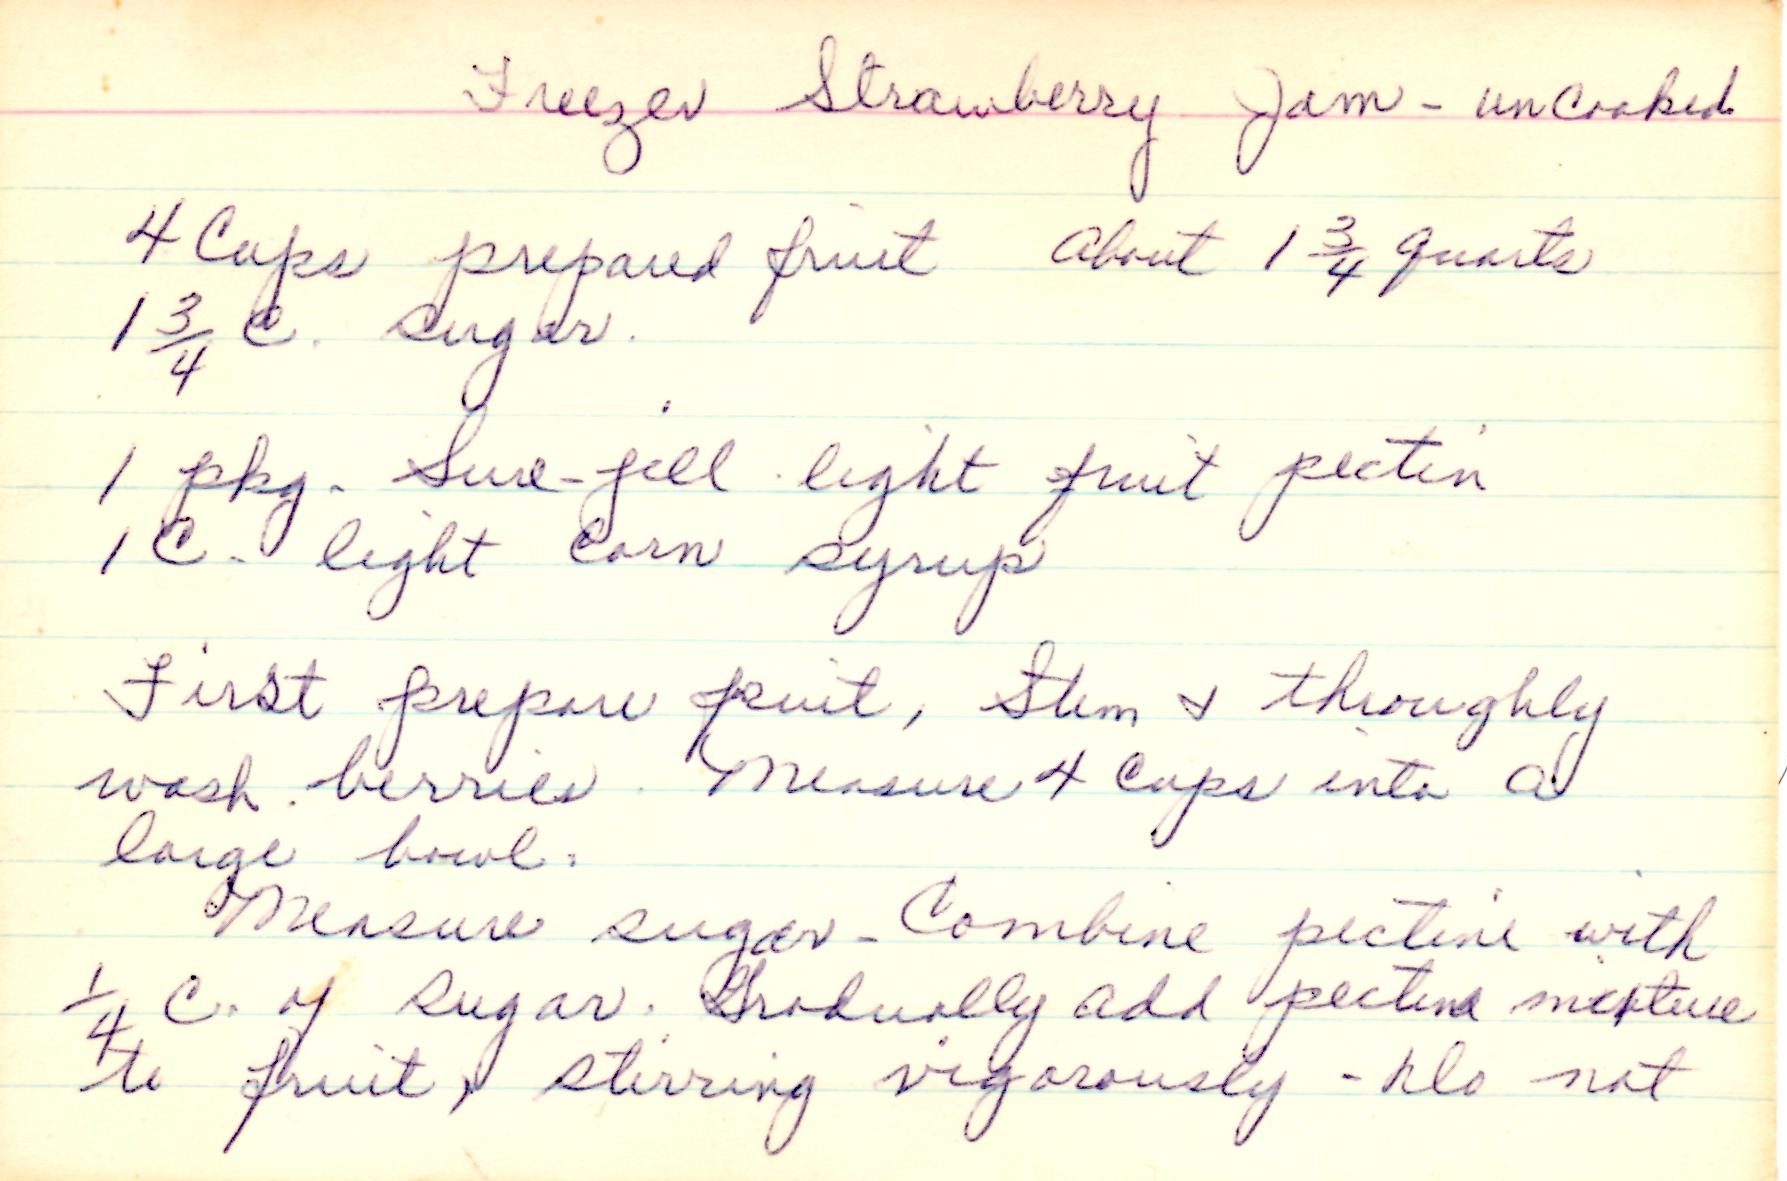 Freezer Strawberry Jam - uncooked
4 Cups prepared fruit About 1 3/4 quarts
1 3/4 C. sugar.
1 pkg. Sure-jell light fruit pectin
1 C. light Corn syrup
First prepare fruit, Stem & throughly
wash berries. Measure 4 Cups into a
large bowl.
Measure sugar - Combine pectine with
1/4 C. of sugar. Gradually add pectine mixture
to fruit, stirring vigorously - do not